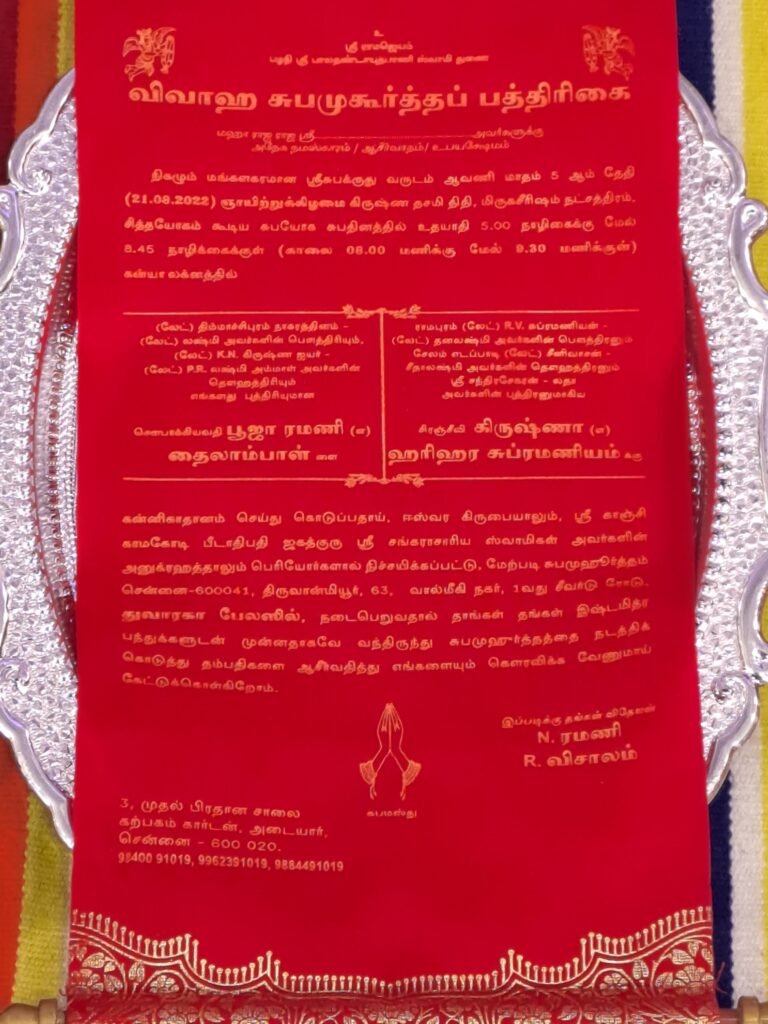 உ
ஸ்ரீ ராமஜெயம்
பழநி ஸ்ரீ பாலதண்டாயுதபாணி ஸ்வாமி துணை
விவாஹ சுபமுகூர்த்தப் பத்திரிகை
மஹா ராஜ ராஜ ஸ்ரீ அவர்களுக்கு
அநேக நமஸ்காரம் / ஆசீர்வாதம்/ உபயக்ஷேமம்
நிகழும் மங்களகரமான ஸ்ரீசுபக்ருது வருடம் ஆவணி மாதம் 5 ஆம் தேதி
(21.08.2022) ஞாயிற்றுக்கிழமை கிருஷ்ண தசமி திதி, மிருகசீரிஷம் நட்சத்திரம்,
சித்தயோகம் கூடிய சுபயோக சுபதினத்தில் உதயாதி 5.00 நாழிகைக்கு மேல்
8.45 நாழிக்கைக்குள் (காலை 08.00 மணிக்கு மேல் 9.30 மணிக்குள்)
கன்யா லக்னத்தில்
(லேட்) திம்மாச்சிபுரம் நாகரத்தினம் -
(லேட்) லஷ்மி அவர்களின் பௌத்திரியும்,
(லேட்) K.N. கிருஷ்ண ஐயர் -
(லேட்) P.R. லஷ்மி அம்மாள் அவர்களின்
தௌஹத்திரியும்
எங்களது புத்திரியுமான
சௌபாக்கியவதி பூஜா ரமணி (எ)
தைலாம்பாள் ளை
ராமபுரம் (லேட்) R.V. சுப்ரமணியன் -
(லேட்) தனலஷ்மி அவர்களின் பௌத்திரனும்
சேலம் எடப்பாடி (லேட்) சீனிவாசன் -
சீதாலஷ்மி அவர்களின் தௌஹத்திரனும்
ஸ்ரீ சந்திரசேகரன் - லதா
அவர்களின் புத்திரனுமாகிய
சிரஞ்சீவி கிருஷ்ணா (எ)
ஹரிஹர சுப்ரமணியம் க்கு
கன்னிகாதானம் செய்து கொடுப்பதாய், ஈஸ்வர கிருபையாலும், ஸ்ரீ காஞ்சி
காமகோடி பீடாதிபதி ஜகத்குரு ஸ்ரீ சங்கராசாரிய ஸ்வாமிகள் அவர்களின்
அனுக்ரஹத்தாலும் பெரியோர்களால் நிச்சயிக்கப்பட்டு, மேற்படி சுபமுஹூர்த்தம்
சென்னை-600041, திருவான்மியூர், 63, வால்மீகி நகர், 1வது சீவர்டு ரோடு,
துவாரகா பேலஸில், நடைபெறுவதால் தாங்கள் தங்கள் இஷ்டமித்ர
பந்துக்களுடன் முன்னதாகவே வந்திருந்து சுபமுஹுர்த்தத்தை நடத்திக்
கொடுத்து தம்பதிகளை ஆசீர்வதித்து எங்களையும் கௌரவிக்க வேணுமாய்
கேட்டுக்கொள்கிறோம்.
இப்படிக்கு தங்கள் விதேயன்
N. ரமணி
R. விசாலம்
சுபமஸ்து
3, முதல் பிரதான சாலை
கற்பகம் கார்டன், அடையார்,
சென்னை - 600 020.
98400 91019, 9962391019, 9884491019